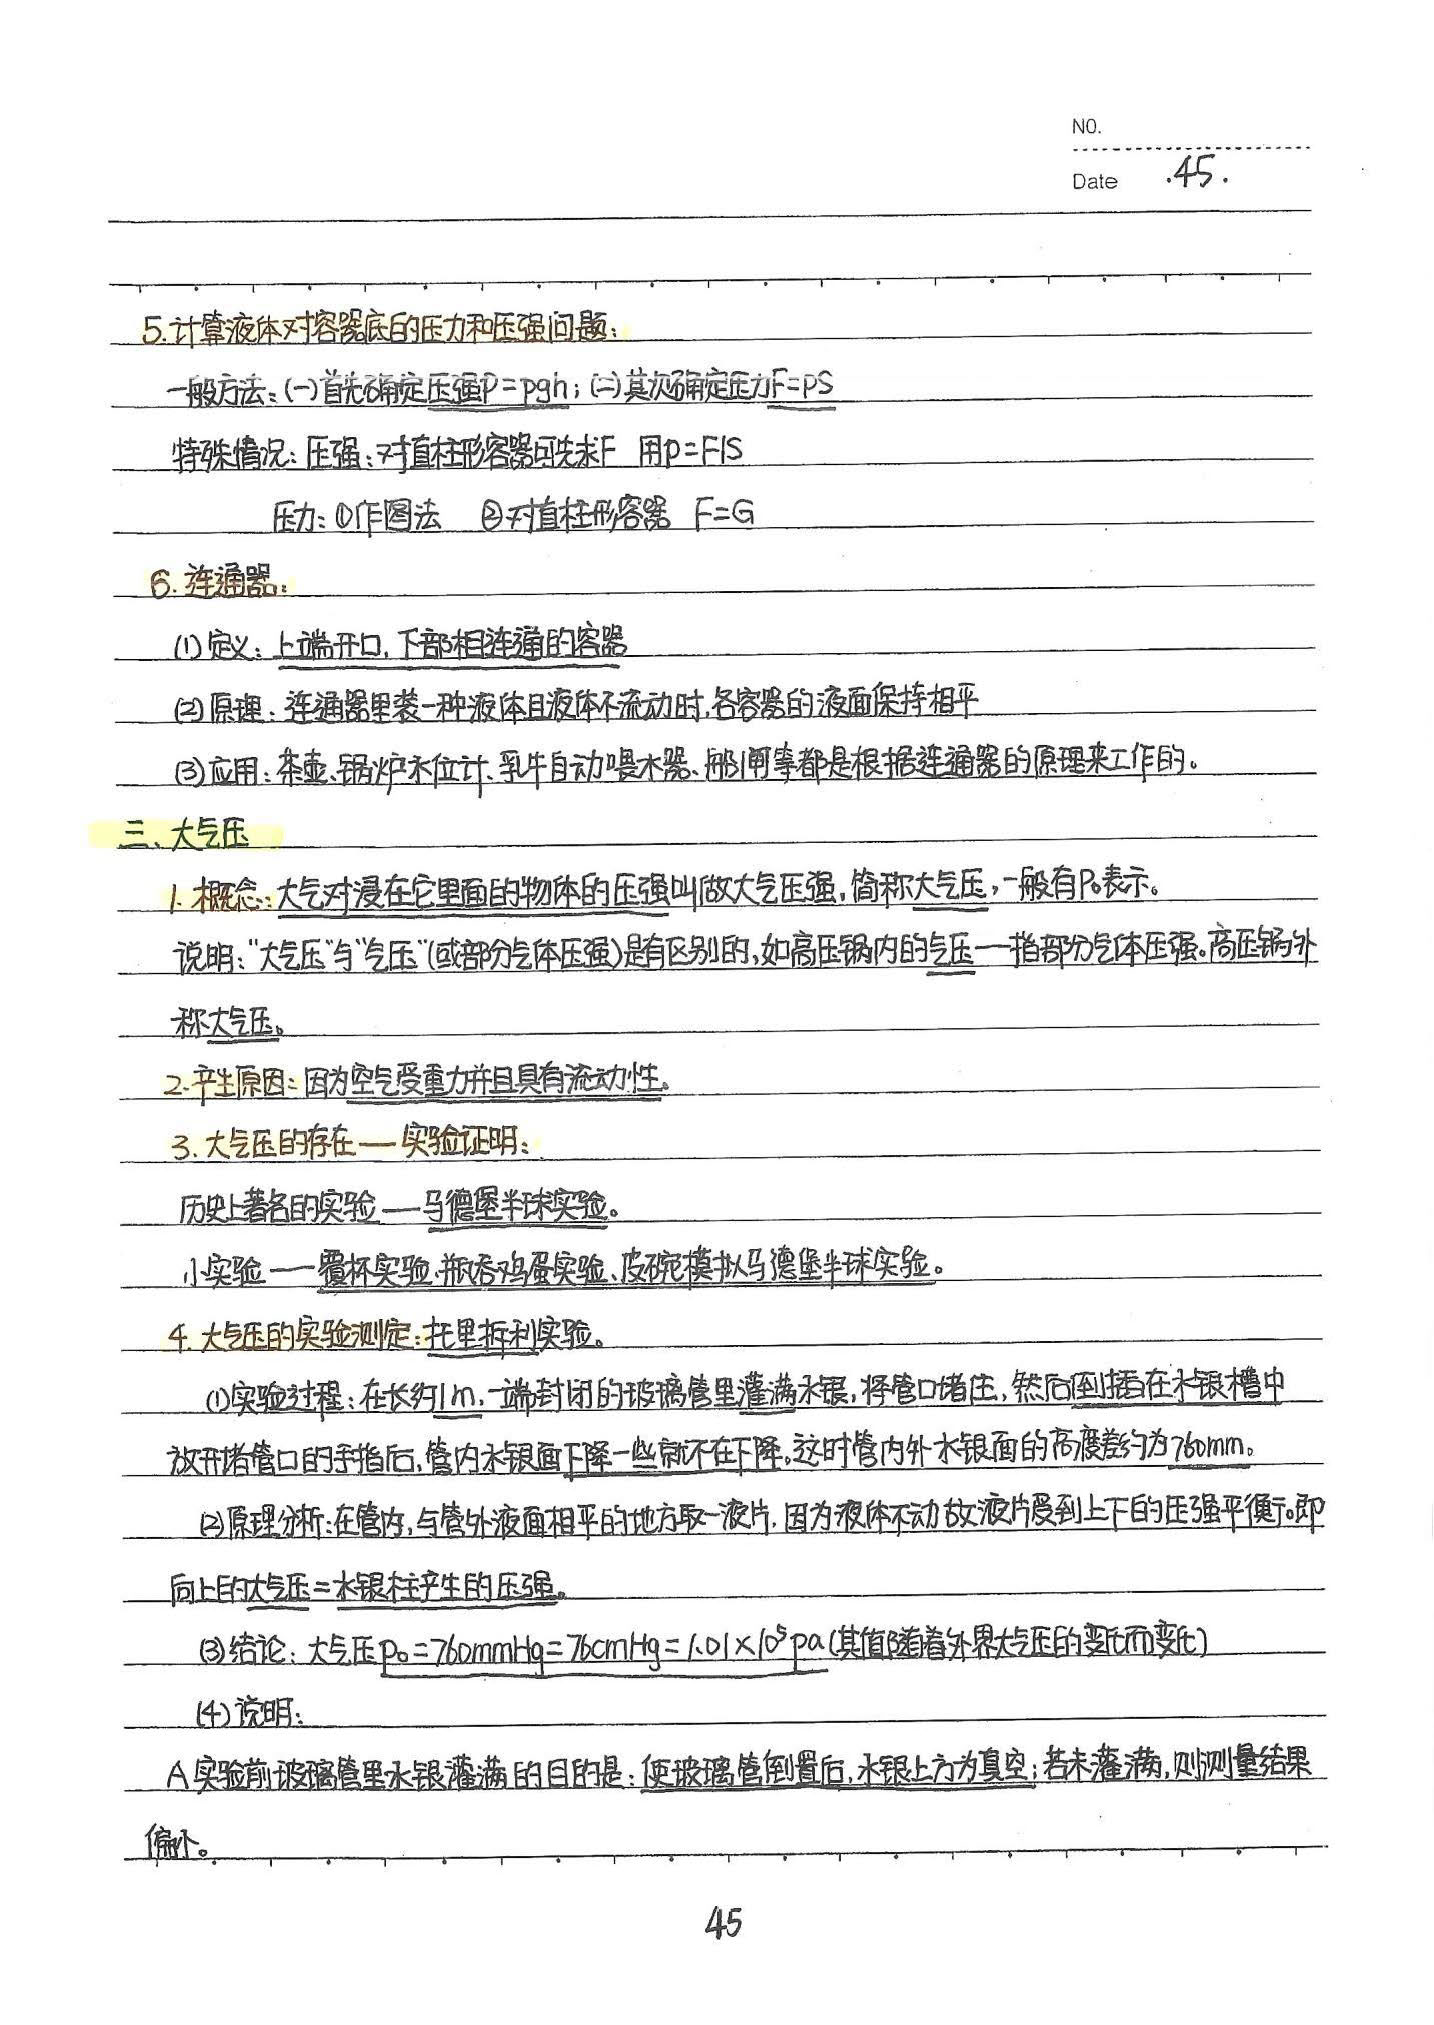 NO.
Date .45.
5.计算液体对容器底的压力和压强问题:
一般方法:(一)首先确定压强P=ρgh;(二)其次确定压力F=pS
特殊情况:压强:对直柱形容器可先求F 用p=F/S
压力:①作图法 ②对直柱形容器 F=G
6.连通器:
(1)定义:上端开口,下部相连通的容器
(2)原理:连通器里装一种液体且液体不流动时,各容器的液面保持相平
(3)应用:茶壶、锅炉水位计、乳牛自动喂水器、船闸等都是根据连通器的原理来工作的。
三、大气压
1.概念:大气对浸在它里面的物体的压强叫做大气压强,简称大气压,一般有P₀表示。
说明:"大气压"与"气压"(或部分气体压强)是有区别的,如高压锅内的气压一指部分气体压强。高压锅外
称大气压。
2.产生原因:因为空气受重力并且具有流动性。
3.大气压的存在一实验证明:
历史上著名的实验——马德堡半球实验。
小实验——覆杯实验、瓶吞鸡蛋实验、皮碗模拟马德堡半球实验。
4.大气压的实验测定:托里拆利实验。
(1)实验过程:在长约1m,一端封闭的玻璃管里灌满水银,将管口堵住,然后倒插在水银槽中
放开堵管口的手指后,管内水银面下降一些就不在下降。这时管内外水银面的高度差约为760mm。
(2)原理分析:在管内,与管外液面相平的地方取一液片,因为液体不动故液片受到上下的压强平衡。即
向上的大气压=水银柱产生的压强。
(3)结论:大气压p₀=760mmHg=76cmHg=1.01×10⁵pa(其值随着外界大气压的变化而变化)
(4)说明:
A实验前玻璃管里水银灌满的目的是:使玻璃管倒置后,水银上方为真空;若未灌满,则测量结果
偏小。
45